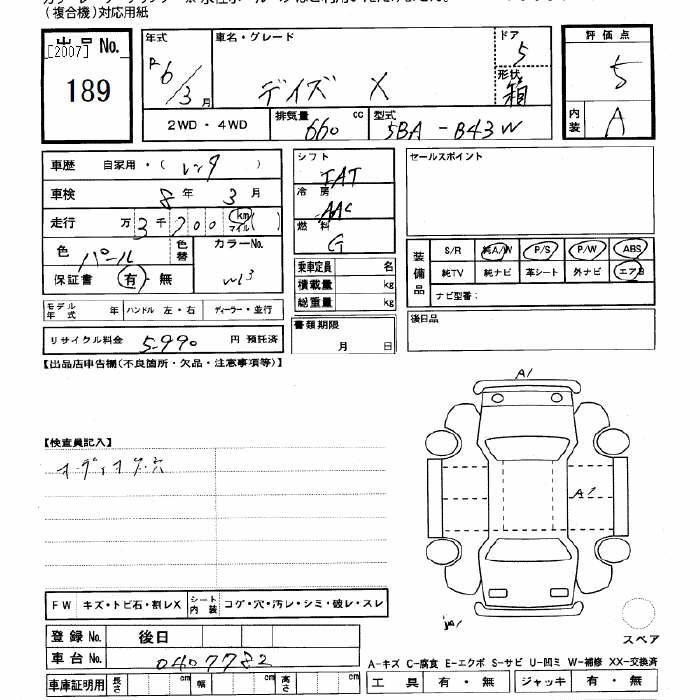 (複合機)対応用紙
出品No.
[2007]
189
年式
R6/3月
車名・グレード
デイズ X
ドア
5
形状
箱
評価点
5
内装
A
2WD・4WD
排気量 660 cc
型式 5BA-B43W
車歴 自家用・( レンタ )
車検 8年 3月
走行 万 3千 200 km マイル ( )
色 パール
色替
カラーNo.
保証書 有・無
モデル年式 年 ハンドル 左・右 ディーラー・並行
リサイクル料金 5990 円 預託済
シフト
IAT
冷房
AAC
燃料
G
乗車定員 名
積載量 kg
総重量 kg
書類期限
月 日
セールスポイント
装備品
S/R 純A/W P/S P/W ABS
純TV 純ナビ 革シート 外ナビ エアB
ナビ型番:
後日品
【出品店申告欄(不良箇所・欠品・注意事項等)】
【検査員記入】
オーディオ穴
A1
A2
FW キズ・トビ石・割レX
シート内装 コゲ・穴・汚レ・シミ・破レ・スレ
登録No. 後日
車台No. 0407782
車庫証明用 長さ cm 幅 cm 高さ cm
スペア
A-キズ C-腐食 E-エクボ S-サビ U-凹ミ W-補修 XX-交換済
工具 有・無 ジャッキ 有・無